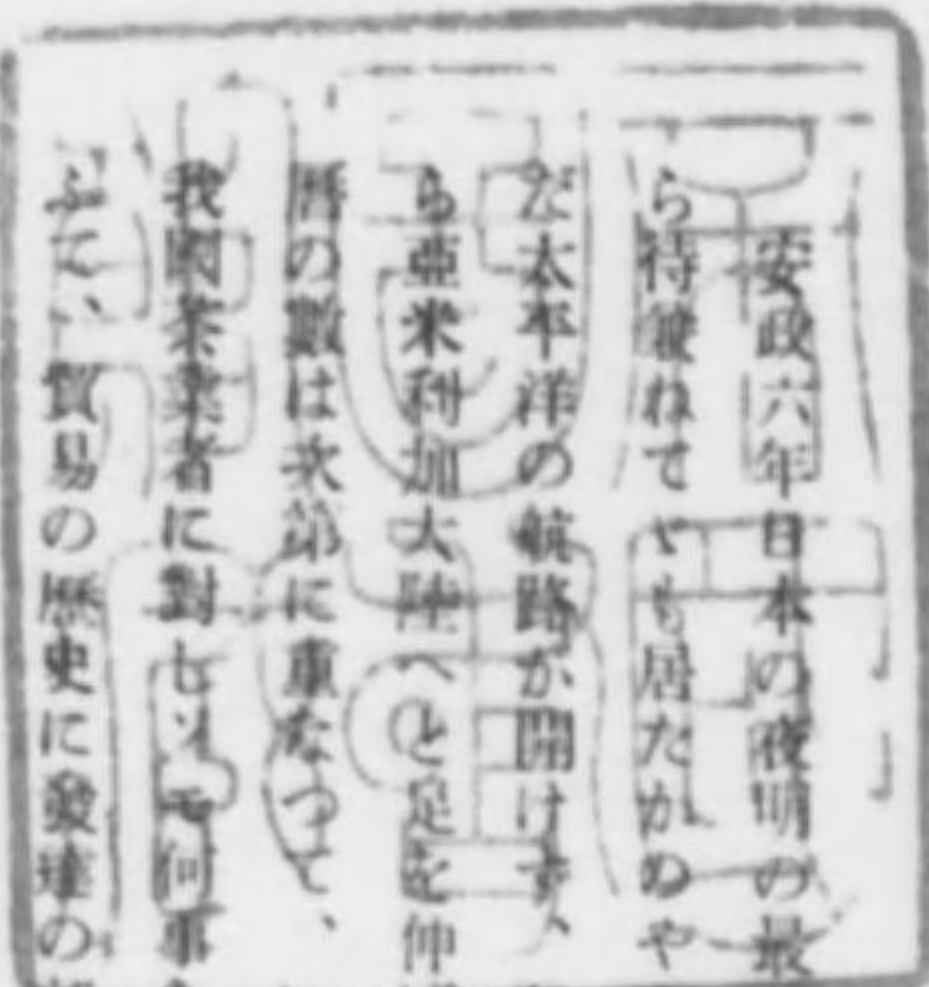 安政六年日本の夜明の最
ら待兼ねてゞも居たかのや
だ太平洋の航路が開けず、
ら亜米利加大陸へと足を伸
暦の數は次第に重なつて、
我國茶業者に對しソモ何事
ふて、貿易の歴史に發達の